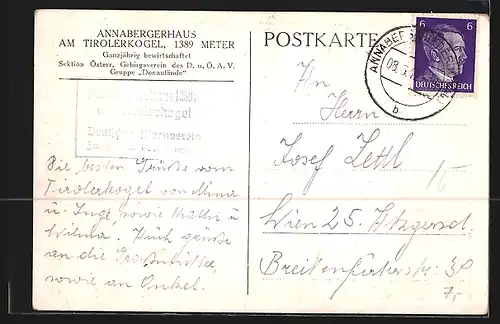 ANNABERGERHAUS
AM TIROLERKOGEL, 1389 METER
Ganzjährig bewirtschaftet
Sektion Österr. Gebirgsverein des D. u. Ö. A. V.
Gruppe „Donaulände“
Die besten Grüße vom
Tirolerkogel von Mina
u. Inge, sowie Kathi u
Wilma. Auch grüße
an die Großmutter,
sowie an Onkel.
POSTKARTE
ANNABERG
b
6 6
DEUTSCHES REICH
An
Herrn
Josef Zettl
Wien 25. Atzgersd.
Breitenfurterstr. 30
7,-